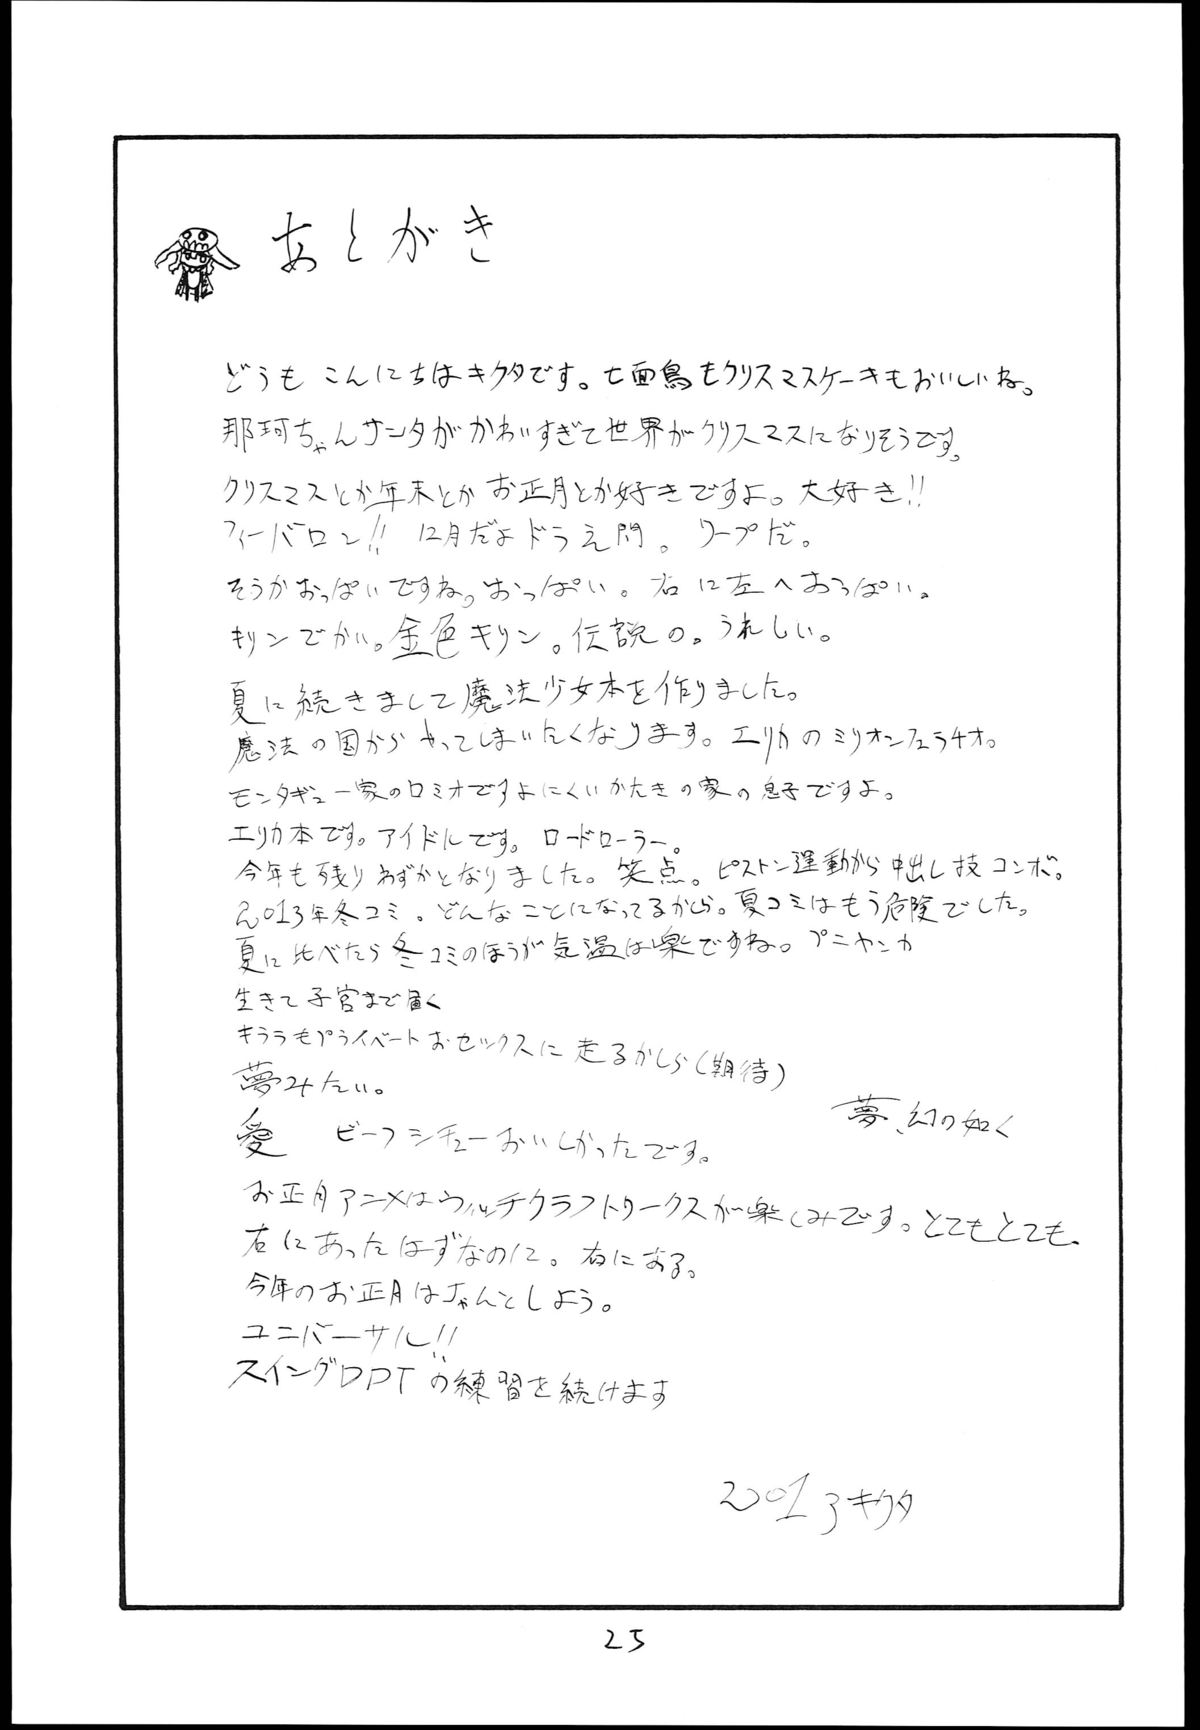 あとがき
どうも こんにちはキクタです。七面鳥もクリスマスケーキもおいしいね。
那珂ちゃんサンタがかわいすぎて世界がクリスマスになりそうです。
クリスマスとか年末とかお正月とか好きですよ。大好き!!
フィーバロン!! 12月だよドラえ問。ワープだ。
そうかおっぱいですね。おっぱい。右に左へおっぱい。
キリンでかい。金色キリン。伝説の。うれしい。
夏に続きまして魔法少女本を作りました。
魔法の国からやってしまいたくなります。エリカのミリオンフェラチオ。
モンタギュー家のロミオですよにくいかたきの家の息子ですよ。
エリカ本です。アイドルです。ロードローラー。
今年も残りわずかとなりました。笑点。ピストン運動から中出し技コンボ。
2013年冬コミ。どんなことになってるかしら。夏コミはもう危険でした。
夏に比べたら冬コミのほうが気温は楽ですね。プニャンカ
生きて子宮まで届く
キララもプライベートおセックスに走るかしら(期待)
夢みたい。
夢、幻の如く
愛 ビーフシチューおいしかったです。
お正月アニメはウィッチクラフトワークスが楽しみです。とてもとても。
右にあったはずなのに。右にある。
今年のお正月はちゃんとしよう。
ユニバーサル!!
スイングDDTの練習を続けます
2013キクタ
25